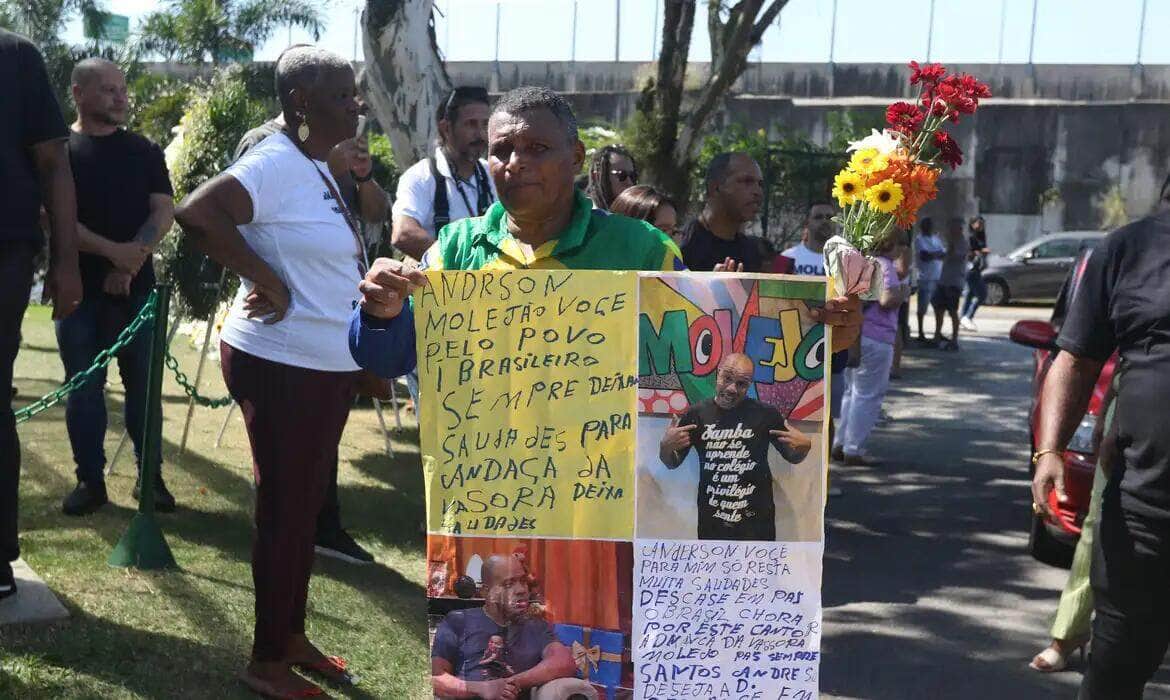 ANDRSON
MOLEJÃO VOCE
PELO POVO
I BRASILEIRO
SEMPRE DEIXA
SAUDADES PARA
ANDAÇA DA
VASORA DEIXA
SAUDADES
MOLEJO
Samba
não se
aprende
no colégio
é um
privilégio
de quem
sente
ANDERSON VOCE
PARA MIM SÓ RESTA
MUITA SAUDADES
DESCASE EM PAS
O BRASIL CHORA
POR ESTE CANTOR
DA VASSORA
MOLEJO PAS SEMPRE
SANTOS ANDRE
DESEJA A D.
EM
MOLE